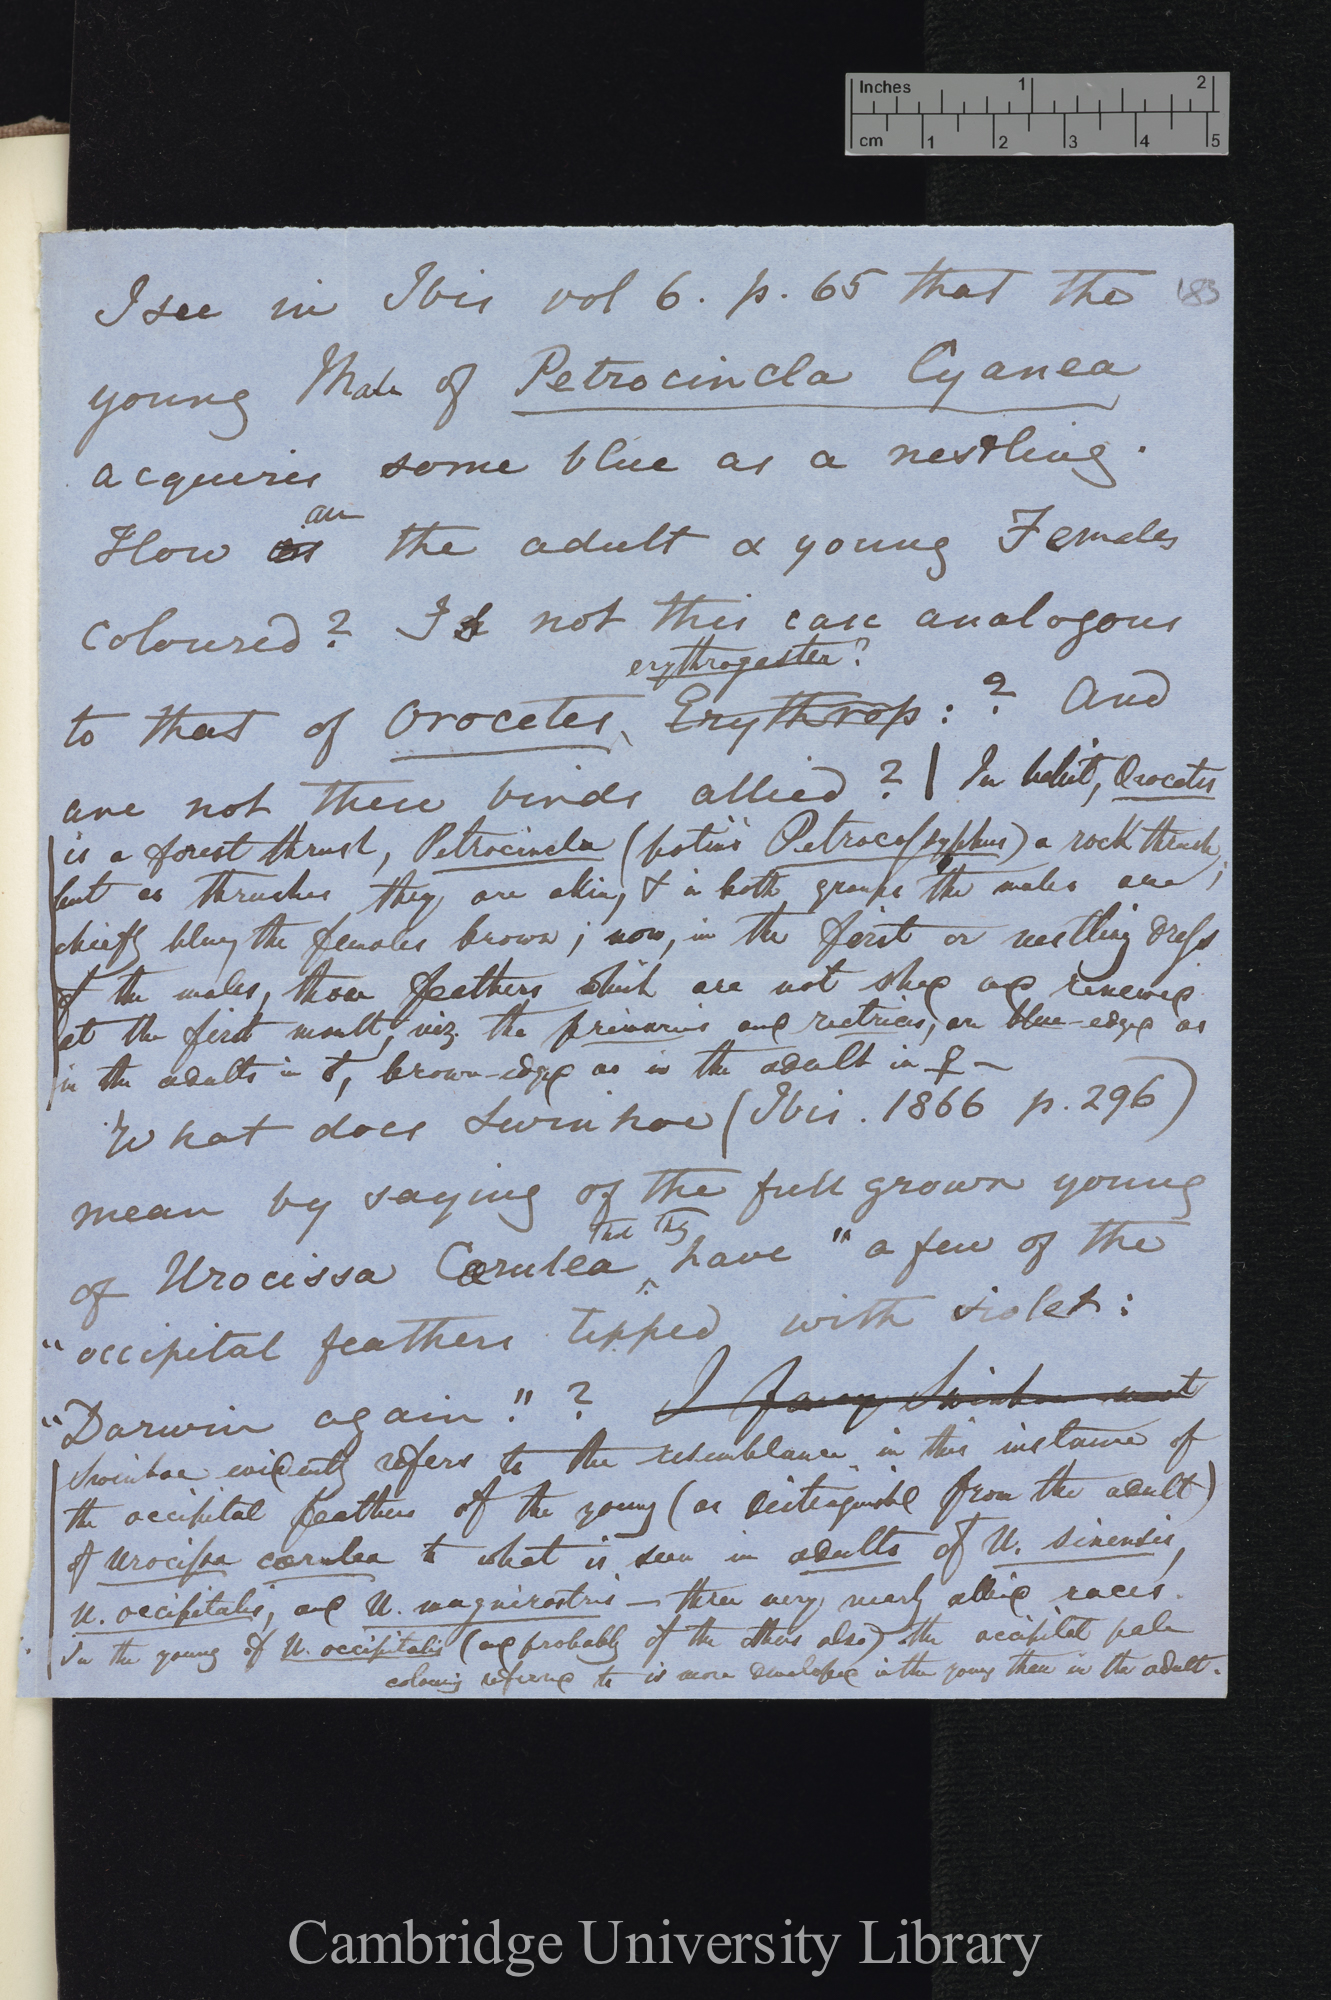 Inches 1 2
cm 1 2 3 4 5
183
I see in Ibis vol 6. p. 65 that the
young Male of Petrocincla Cyanea
acquires some blue as a nestling.
are
How the adult & young Females
coloured? Is not this case analogous
erythrogaster?
to that of Orocetes Erythrop: ? And
are not these birds allied? | In habit, Orocetes
is a forest thrush, Petrocincla (potius Petrocossyphus) a rock thrush;
but as thrushes they are akin, & in both groups the males are
chiefly blue, the females brown; now, in the first or nestling dress
of the males, those feathers which are not shed and renewed
at the first moult, viz. the primaries and rectrices, are blue-edged as
in the adults in ♂, brown-edged as in the adult in ♀ —
What does Swinhoe (Ibis. 1866 p. 296)
mean by saying of the full grown young
that they
of Urocissa Cærulea have "a few of the
"occipital feathers tipped with violet:
"Darwin again." ? I fancy Swinhoe must
Swinhoe evidently refers to the resemblance in this instance of
the occipital feathers of the young (as distinguished from the adult)
of Urocissa cærulea to what is seen in adults of U. sinensis,
U. occipitalis, and U. magnirostris — three very nearly allied races.
In the young of U. occipitalis (and probably of the others also) the occipital pale
colouring referred to is more developed in the young than in the adult.
Cambridge University Library